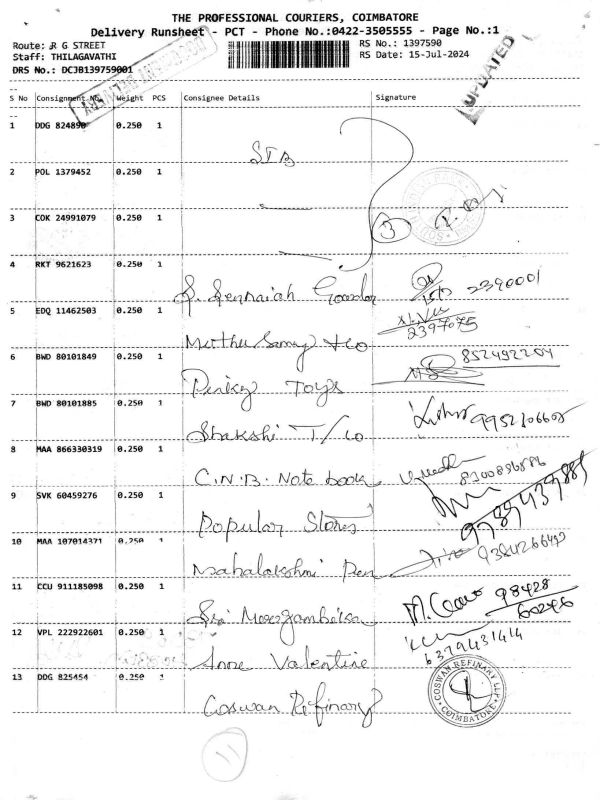 THE PROFESSIONAL COURIERS, COIMBATORE
Delivery Runsheet - PCT - Phone No.:0422-3505555 - Page No.:1
Route: R G STREET
RS No.: 1397590
Staff: THILAGAVATHI
RS Date: 15-Jul-2024
DRS No.: DCJB139759001
UPDATED
S No Consignment No. Weight PCS Consignee Details Signature
1 DDG 824890 0.250 1
STB
2 POL 1379452 0.250 1
3 COK 24991079 0.250 1
3
4 RKT 9621623 0.250 1
S. Sennaiah Goundor 2390001
5 EDQ 11462503 0.250 1
Muthu Samy & co 2397075
6 BWD 80101849 0.250 1
Pinky Toys 852492204
7 BWD 80101885 0.250 1
Shakshi T/co
8 MAA 866330319 0.250 1
C.N.B. Note book
9 SVK 60459276 0.250 1
Popular Stores
10 MAA 107014371 0.250 1
Mahalakshmi Pen
11 CCU 911185098 0.250 1
Sri Moogambika 98428
12 VPL 222922601 0.250 1
Anne Valentine 6379431414
13 DDG 825454 0.250 1
Coswan Refinary
COSWAN REFINARY LLP
COIMBATORE
11